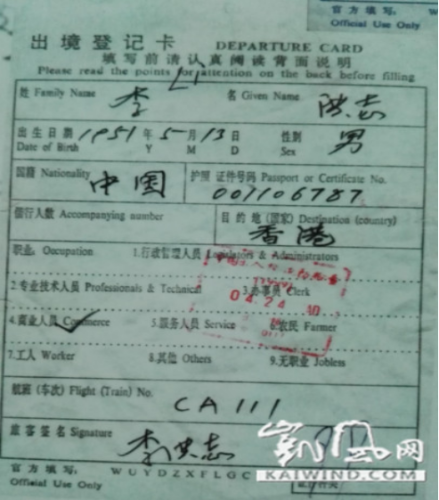 官 方 填 写：
Official Use Only
出 境 登 记 卡 DEPARTURE CARD
填写前请认真阅读背面说明
Please read the points for attention on the back before filling
Li
姓 Family Name 李 名 Given Name 洪志
出 生 日 期 1951 年 5 月 13 日 性别 男
Date of Birth Y M D Sex
国籍 Nationality 中国 护照 证件号码 Passport or Certificate No.
001106787
偕行人数 Accompanying number 目 的 地 (国家) Destination (country)
香港
职业: Occupation 1.行政管理人员 Legislators & Administrators
2.专业技术人员 Professionals & Technical 3.办事员 Clerk
0 4 2 4
4.商业人员 Commerce 5.服务人员 Service 6.农民 Farmer
7.工人 Worker 8.其他 Others 9.无职业 Jobless
航班 (车次) Flight (Train) No.
CA111
旅 客 签 名 Signature 李洪志
凯风网
KAIWIND.COM
官 方 填 写: WUYDZXFLGC
Official Use Only